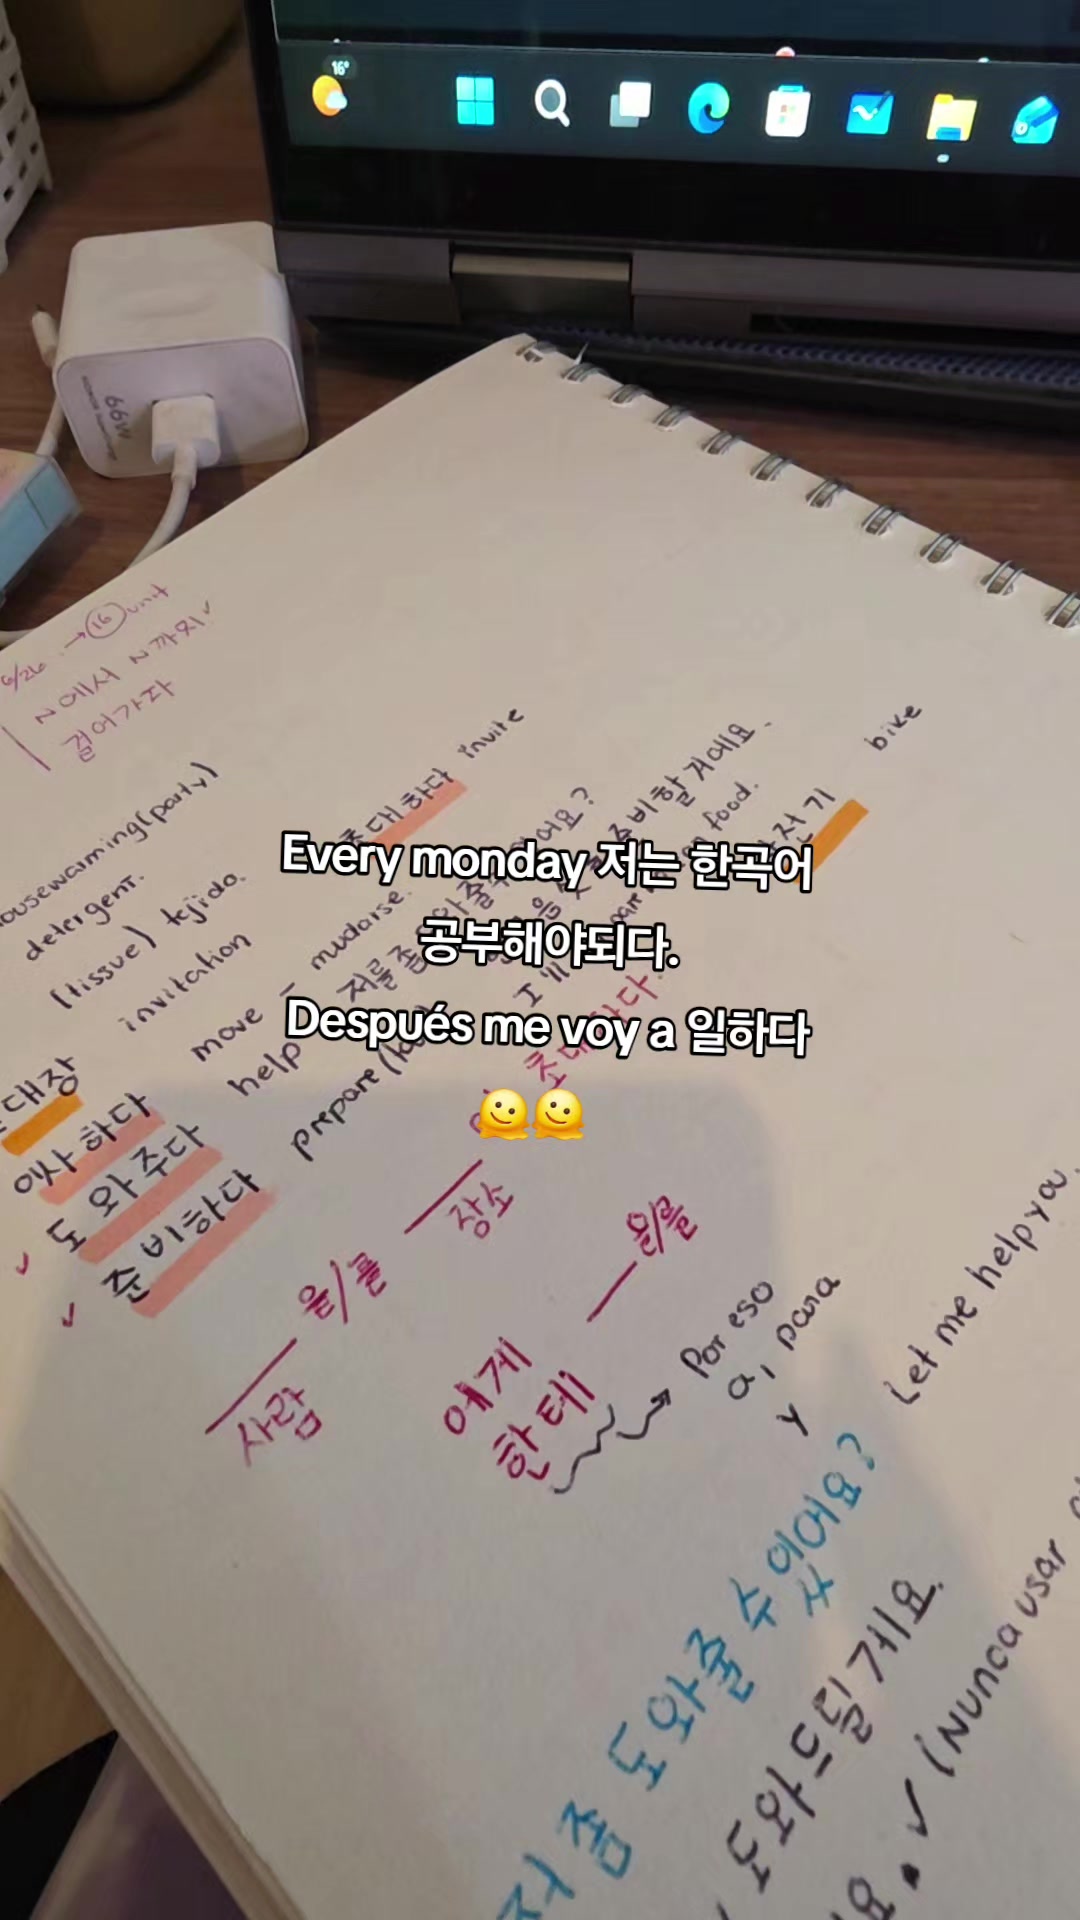 16°
66W
6/26 → 16 unit
N에서 N까지
걸어가자
housewarming (party)
detergent.
(tissue) tejido.
invitation
초대하다 invite
bike
move - mudarse.
help
prepare
food.
Every monday 저는 한곡어
공부해야되다.
Después me voy a 일하다
🫠🫠
대장
이사하다
도와주다
준비하다
을/를
사람
장소
을/를
에게
한테
Por eso
a, para
y
Let me help you.
저 좀 도와줄 수 있어요?
도와드릴게요.
(Nunca usar